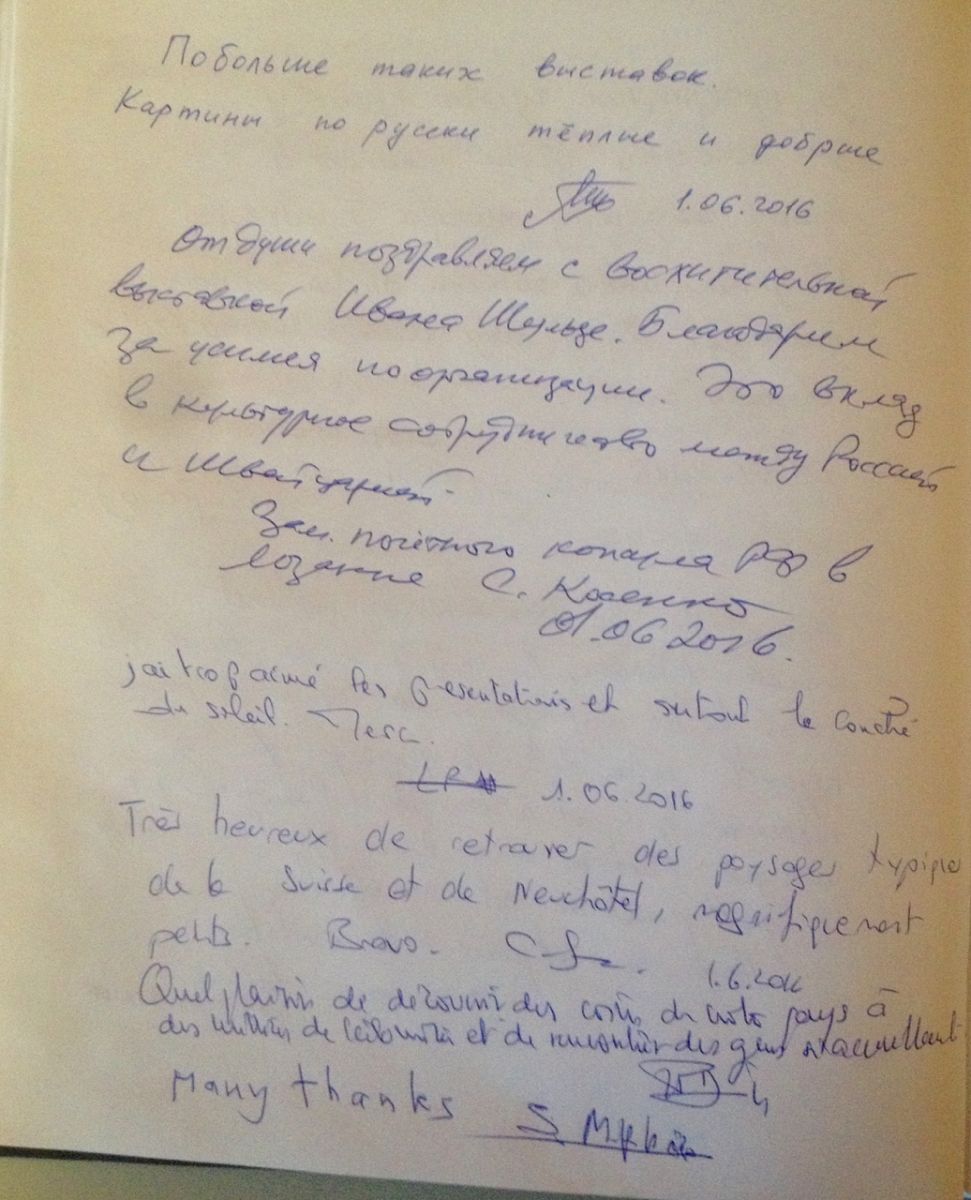 Побольше таких выставок.
Картины по русски тёплые и добрые
1.06.2016
От души поздравляем с восхитительной
выставкой Ивана Шульце. Благодарим
за усилия по организации. Это вклад
в культурное сотрудничество между Россией
и Швейцарией.
Зам. почётного консула РФ в
Лозанне С. Косенко
01.06 2016.
j'ai trop aimé les presentations et surtout le couché
du soleil. Merci.
1.06.2016
Très heureux de retrouver des paysages typiques
de la Suisse et de Neuchâtel, magnifiquement
peints. Bravo.
1.6.2016
Quel plaisir de découvrir des coins de notre pays à
des milliers de kilomètres et de rencontrer des gens si accueillants
Many thanks